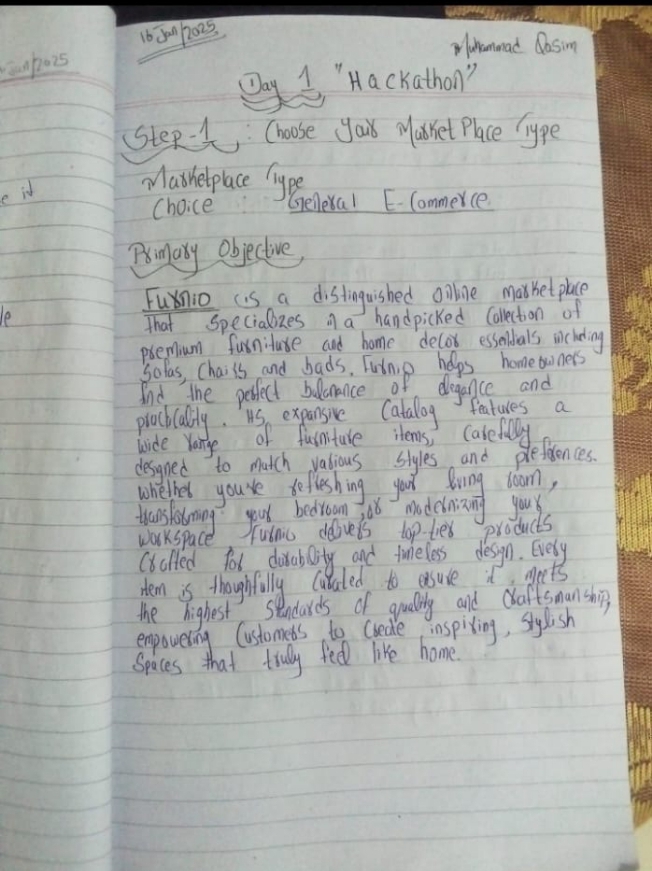 16 Jan/2025
Muhammad Qasim
Day 1 "Hackathon"
Step-1 : Choose Your Market Place Type
Marketplace Type
Choice : General E-Commerce
Primary Objective
Furnio is a distinguished online marketplace
that specializes in a handpicked Collection of
premium furniture and home decor essentials including
Sofas, Chairs and beds. Furnio helps homeowners
find the perfect balance of elegance and
practicality. Its expansive Catalog features a
wide range of furniture items, Carefully
designed to match various styles and preferences.
whether you're refreshing your living room,
transforming your bedroom, or modernizing your
workspace Furnio delivers top-tier products
Crafted for durability and timeless design. Every
item is thoughtfully Curated to ensure it meets
the highest Standards of quality and Craftsmanship,
empowering Customers to Create inspiring, Stylish
Spaces that truly feel like home.